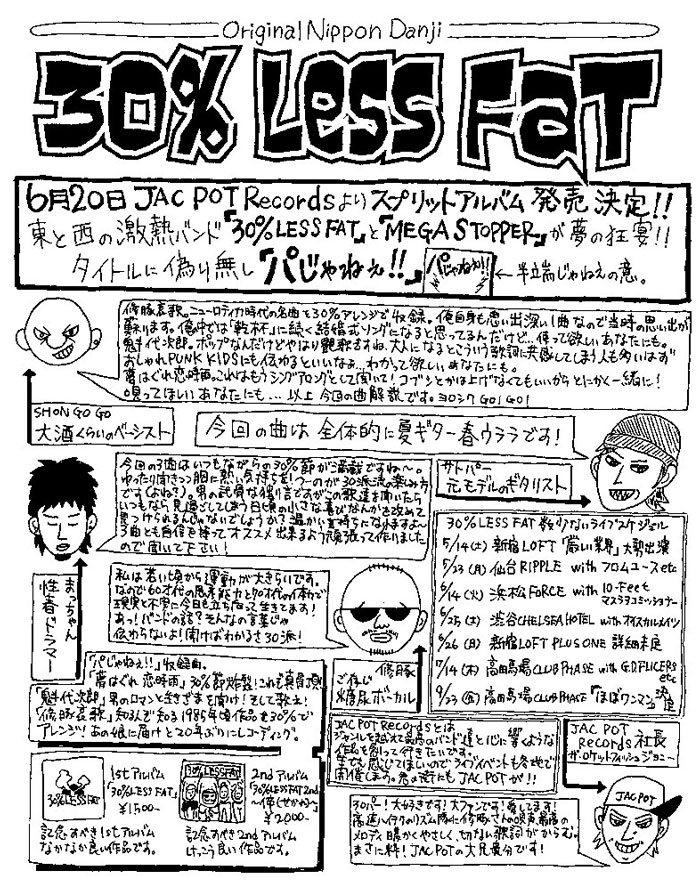 Original Nippon Danji
30% Less Fat
6月20日 JAC POT Recordsよりスプリットアルバム発売決定!!
東と西の激熱バンド「30% LESS FAT」と「MEGA STOPPER」が夢の狂宴!!
タイトルに偽り無し「パじゃねぇ!!」
パじゃねぇ!!
←半端じゃねえの意。
修豚哀歌。ニューロティカ時代の名曲を30%アレンジで収録。俺自身も思い出深い1曲なので当時の思い出が
蘇ります。億中では「乾杯」に続く結婚式ソングになると思ってるんだけど…使って欲しいあなたにも。
魁千代次郎。ポップなんだけどやはり艶歌ですね、大人になるとこういう歌詞に共感してしまう人も多いはず
おしゃれPUNK KIDSにも伝わるといいなぁ…わかって欲しいあなたにも。
夢はぐれ恋時雨。これはもうシングアロングとして聞いて!コブシとかは上げなくてもいいからとにかく一緒に!
唄ってほしいあなたにも…以上 今回の曲解説です。ヨロシクGO!GO!
SHON GO GO
大酒くらいのベーシスト
今回の曲は全体的に夏ギター春ウララです!
サトパー
元モデルのギタリスト
今回の3曲はいつもながらの30%節が満載ですね～。
ゆったり聞きつつ胸に熱い気持ちを!つーのが30派流の楽しみ方
です(よね?)。男の武骨な独り言ですがこの歌達を聞いたら
いつもなら見過ごしてしまう日々の小さな喜びなんかを改めて
見つけられるんじゃないでしょうか?温かい気持ちになれますよ～
3曲とも自信を持ってオススメ出来るよう頑張って作りました
ので聞いて下さい!
まっちゃん
性春ドラマー
私は若い頃から運動が大きらいです。
なので60才代の思考能力と70才代の体力で
現実と不安に今日も立ち向って生きてます!
あっ!バンドの話?そんなの言葉じゃ
伝わらないよ!聞けばわかるさ30派!
修豚
ご存じ
糖尿ボーカル
30% LESS FAT 数少ないライブスケジュール
5/14(土) 新宿LOFT「賞い業界」大勢出演
5/23(月) 仙台RIPPLE with フロムユースetc
6/14(火) 浜松FORCE with 10-Feet
マスラヲコミッショナー
6/25(土) 渋谷CHELSEA HOTEL with オスカルメイツ
6/26(日) 新宿LOFT PLUS ONE 詳細未定
7/14(木) 高田馬場CLUB PHASE with G.D.FLICKERS
etc
9/23(金) 高田馬場CLUB PHASE『ほぼワンマン』決定
「パじゃねぇ!!」収録曲。
「夢はぐれ恋時雨」30%節炸裂!これも真骨頂
「魁千代次郎」男のロマンと生きざまを聞け!そして歌え!
「修豚哀歌」知る人ぞ知る1985年頃作品を30%で
アレンジ!あの娘に届けと20年ぶりにレコーディング。
30% LESS FAT
1stアルバム
「30% LESS FAT」
¥1500-
記念すべき1stアルバム
なかなか良い作品です。
30% LESS FAT
2ndアルバム
「30% LESS FAT 2nd
¥2000-
記念すべき2ndアルバム
けっこう良い作品です。
JAC POT Recordsとは
ジャンルを越えて最高のバンド達と心に響くような
作品を創って行きたいです。
生でも感じてほしいのでライブイベントも各地で
開催します。君の街にもJAC POTが!!
JAC POT
Records社長
ザ・ロケットフィッシュジョニー
30パー!大好きです!大ファンです!愛してます!
高速ハイテクのリズム隊に修豚さんの哀声最高の
メロディ 暖かくやさしく、切ない歌詞がからむ。
まさに粋!JAC POTの大兄貴分です!
JAC POT